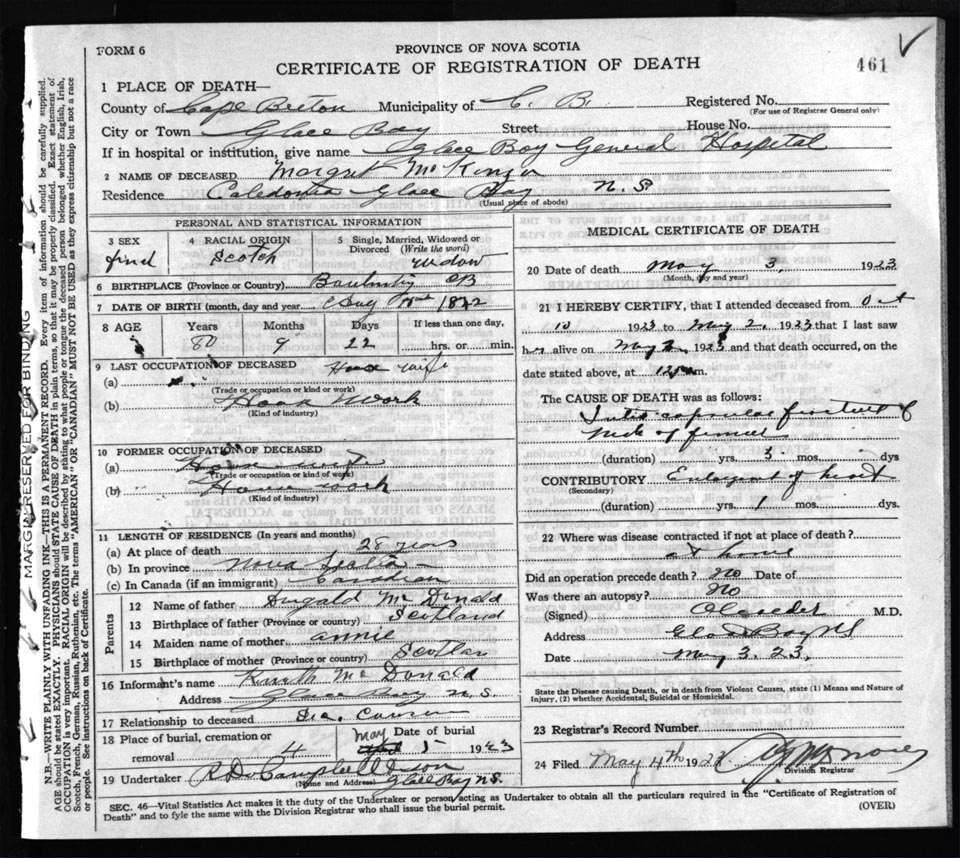 FORM 6
PROVINCE OF NOVA SCOTIA
CERTIFICATE OF REGISTRATION OF DEATH
461
1 PLACE OF DEATH—
County of Cape Breton Municipality of C. B. Registered No.
(For use of Registrar General only)
City or Town Glace Bay Street House No.
If in hospital or institution, give name Glace Bay General Hospital
2 NAME OF DECEASED Margret
Residence Caledonia Glace Bay N. S
(Usual place of abode)
PERSONAL AND STATISTICAL INFORMATION
3 SEX
4 RACIAL ORIGIN
Scotch
5 Single, Married, Widowed or Divorced (Write the word)
6 BIRTHPLACE (Province or Country) CB
7 DATE OF BIRTH (month, day and year) Aug
8 AGE
Years Months Days
80 9 22
If less than one day,
hrs. or min.
9 LAST OCCUPATION OF DECEASED
(a) wife
(Trade or occupation or kind or work)
(b) Work
(Kind of industry)
10 FORMER OCCUPATION OF DECEASED
(a) wife
(Trade or occupation or kind of work)
(b) House work
(Kind of industry)
11 LENGTH OF RESIDENCE (In years and months)
(a) At place of death 28 years
(b) In province Nova Scotia
(c) In Canada (if an immigrant) Canadian
Parents
12 Name of father Dugald McDonald
13 Birthplace of father (Province or country) Scotland
14 Maiden name of mother annie
15 Birthplace of mother (Province or country)
16 Informant's name McDonald
Address Glace Bay N.S.
17 Relationship to deceased
18 Place of burial, cremation or removal
May Date of burial
1923
19 Undertaker
(Name and Address) Glace Bay N.S.
MEDICAL CERTIFICATE OF DEATH
20 Date of death May 3, 1923
(Month, day and year)
21 I HEREBY CERTIFY, that I attended deceased from Oct
10 1923 to May 2, 1923 that I last saw
her alive on May 1923 and that death occurred, on the
date stated above, at m.
The CAUSE OF DEATH was as follows:
Intra capsular fracture of
neck of femur
(duration) yrs. 3 mos. dys
CONTRIBUTORY Enlargment of heart
(Secondary)
(duration) yrs. 1 mos. dys.
22 Where was disease contracted if not at place of death?
at home
Did an operation precede death? No Date of
Was there an autopsy? No
(Signed) M.D.
Address
Date May 3. 23.
State the Disease causing Death, or in death from Violent Causes, state (1) Means and Nature of
Injury, (2) whether Accidental, Suicidal or Homicidal.
23 Registrar's Record Number
24 Filed May 4th
Division Registrar
SEC. 46—Vital Statistics Act makes it the duty of the Undertaker or person acting as Undertaker to obtain all the particulars required in the "Certificate of Registration of
Death" and to fyle the same with the Division Registrar who shall issue the burial permit.
(OVER)
MARGIN RESERVED FOR BINDING
N.B.—WRITE PLAINLY WITH UNFADING INK—THIS IS A PERMANENT RECORD. Every item of information should be carefully supplied.
AGE should be stated EXACTLY. PHYSICIANS should STATE CAUSE OF DEATH in plain terms, so that it may be properly classified. Exact statement of
OCCUPATION is very important. RACIAL ORIGIN will be described by stating to what people or tongue the deceased person belonged whether English, Irish,
Scotch, French, German, Russian, Ruthenian, etc. The terms "AMERICAN" or "CANADIAN" MUST NOT BE USED as they express citizenship but not a race
or people. See instructions on back of Certificate.